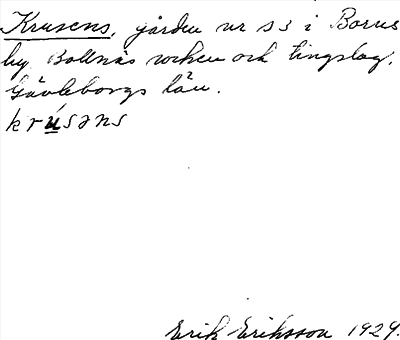 Krusens, gården nr 53 i Borns
by, Bollnäs socken och tingslag,
Gävleborgs län.
krúsəns
Erik Eriksson 1929.